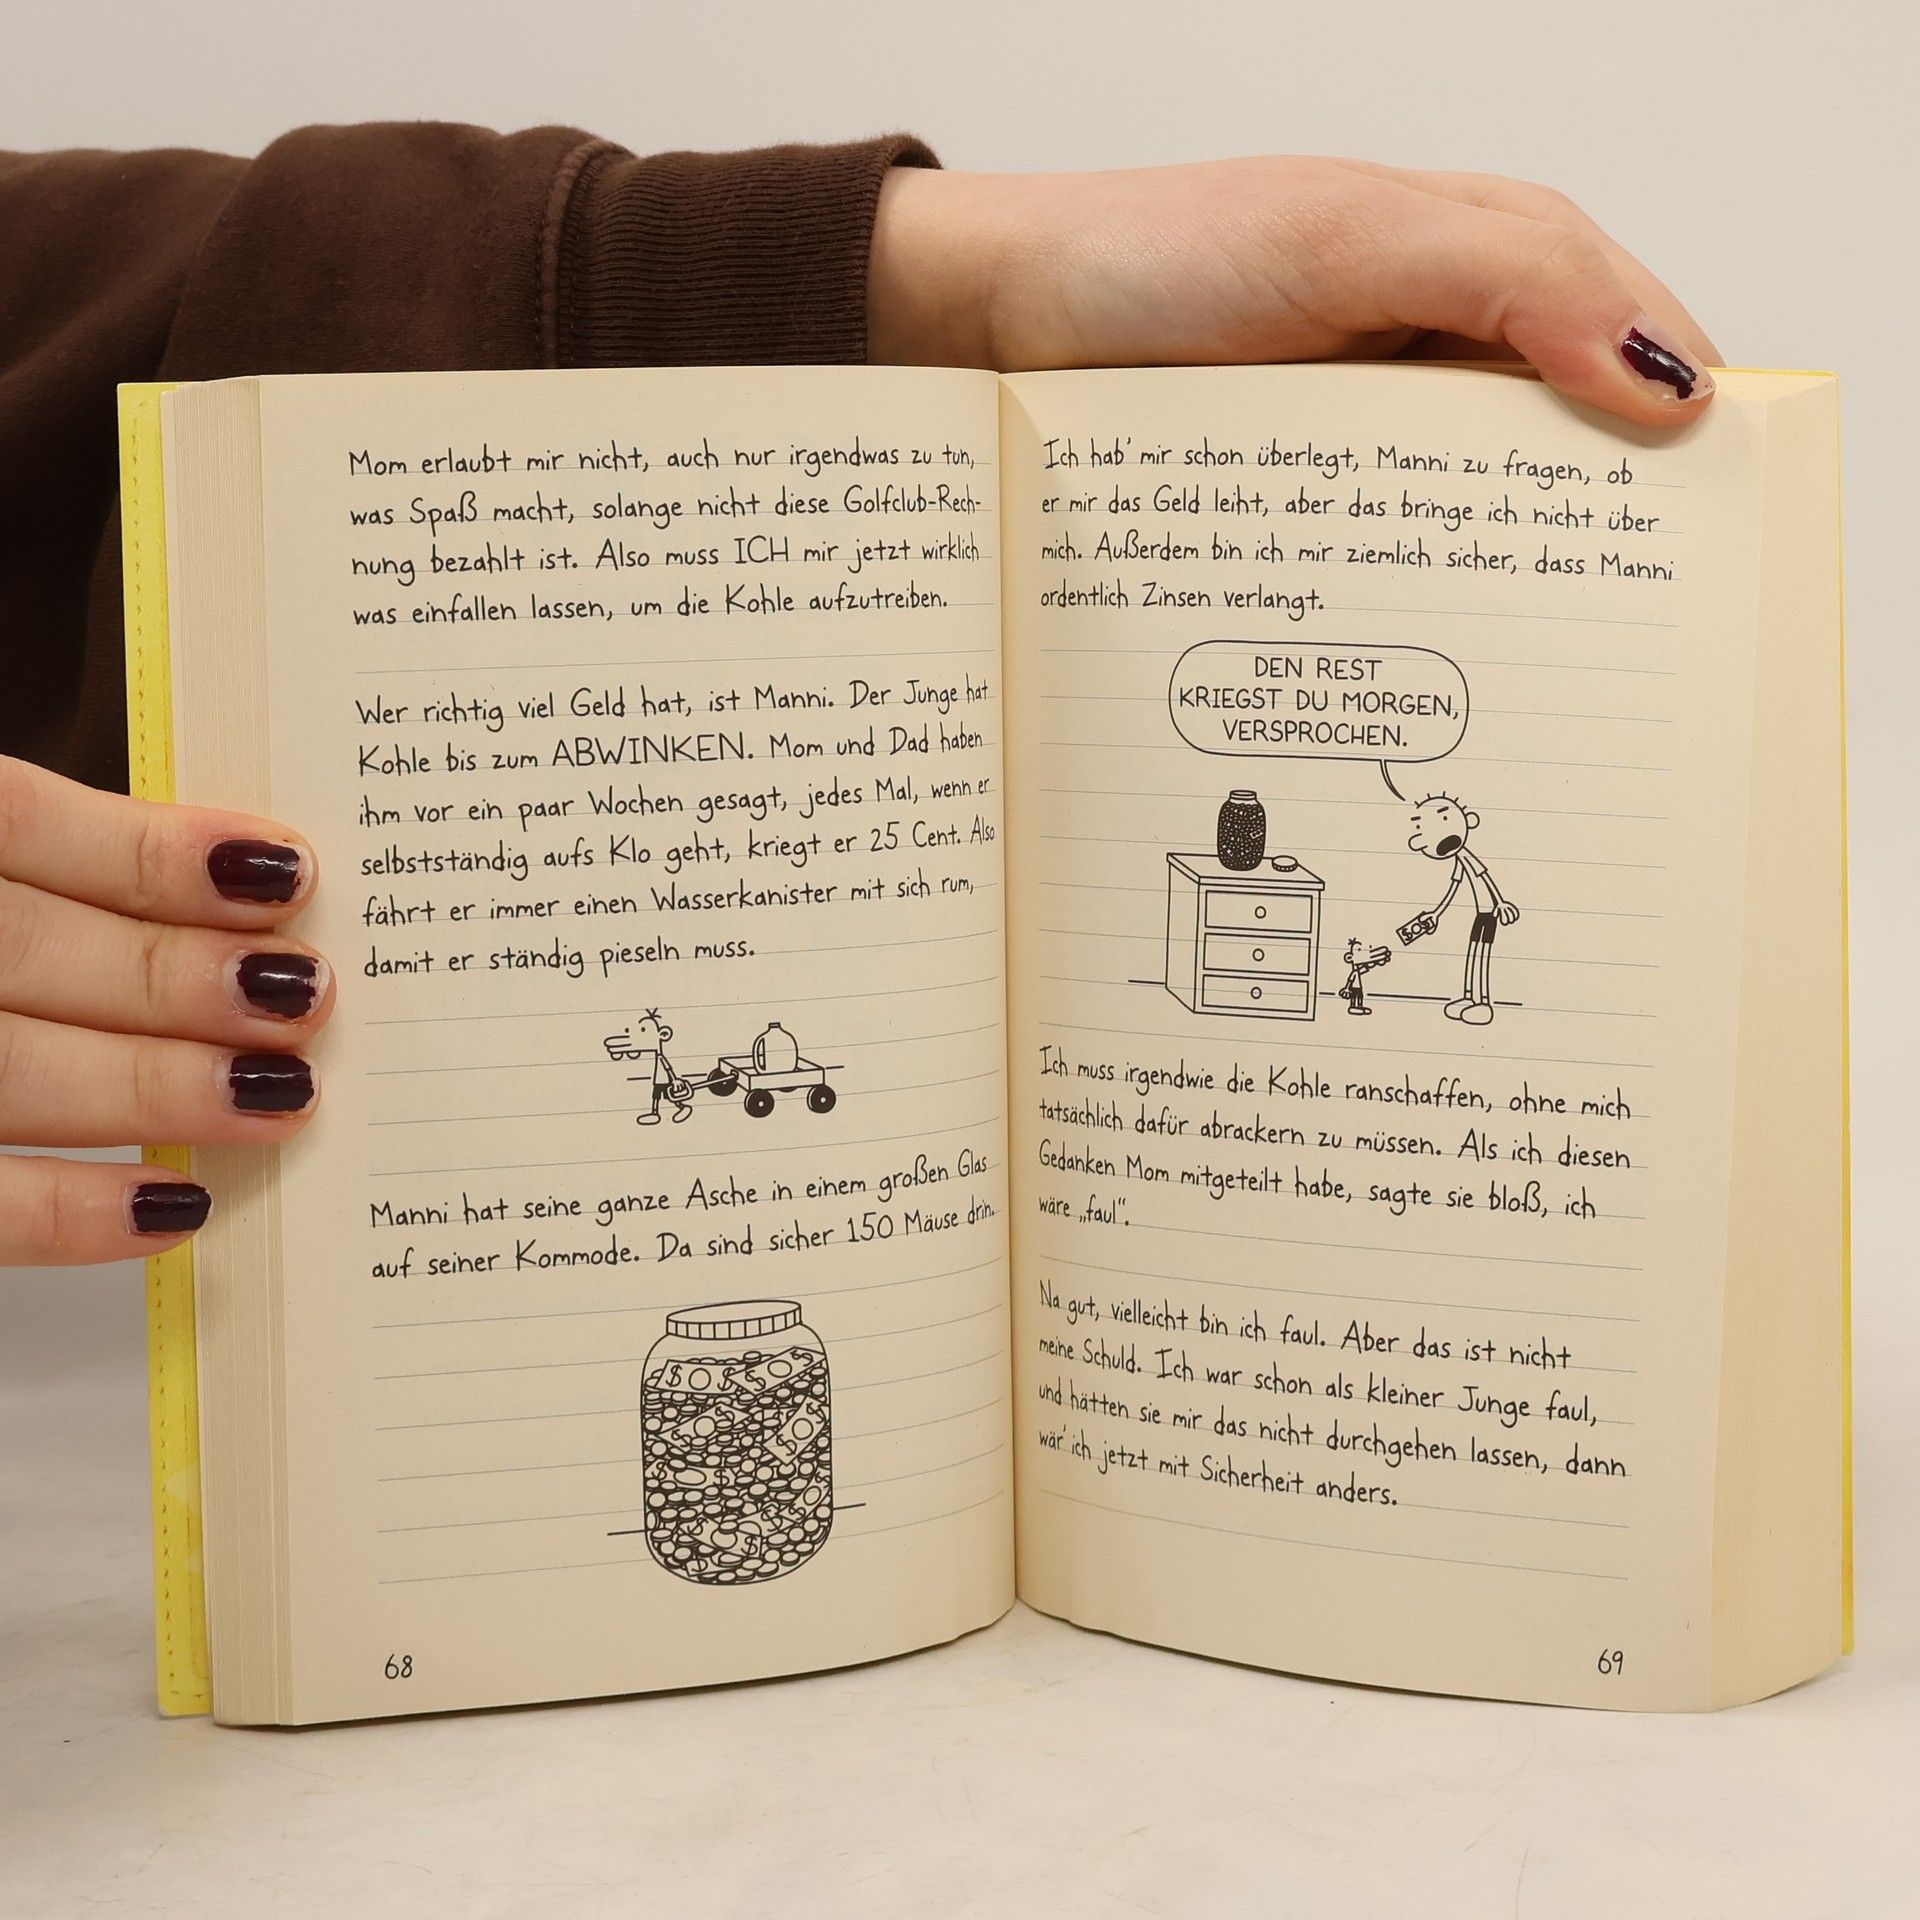 Mom erlaubt mir nicht, auch nur irgendwas zu tun,
was Spaß macht, solange nicht diese Golfclub-Rech-
nung bezahlt ist. Also muss ICH mir jetzt wirklich
was einfallen lassen, um die Kohle aufzutreiben.
Wer richtig viel Geld hat, ist Manni. Der Junge hat
Kohle bis zum ABWINKEN. Mom und Dad haben
ihm vor ein paar Wochen gesagt, jedes Mal, wenn er
selbstständig aufs Klo geht, kriegt er 25 Cent. Also
fährt er immer einen Wasserkanister mit sich rum,
damit er ständig pieseln muss.
Manni hat seine ganze Asche in einem großen Glas
auf seiner Kommode. Da sind sicher 150 Mäuse drin.
68
Ich hab' mir schon überlegt, Manni zu fragen, ob
er mir das Geld leiht, aber das bringe ich nicht über
mich. Außerdem bin ich mir ziemlich sicher, dass Manni
ordentlich Zinsen verlangt.
DEN REST
KRIEGST DU MORGEN,
VERSPROCHEN.
Ich muss irgendwie die Kohle ranschaffen, ohne mich
tatsächlich dafür abrackern zu müssen. Als ich diesen
Gedanken Mom mitgeteilt habe, sagte sie bloß, ich
wäre „faul“.
Na gut, vielleicht bin ich faul. Aber das ist nicht
meine Schuld. Ich war schon als kleiner Junge faul,
und hätten sie mir das nicht durchgehen lassen, dann
wär' ich jetzt mit Sicherheit anders.
69